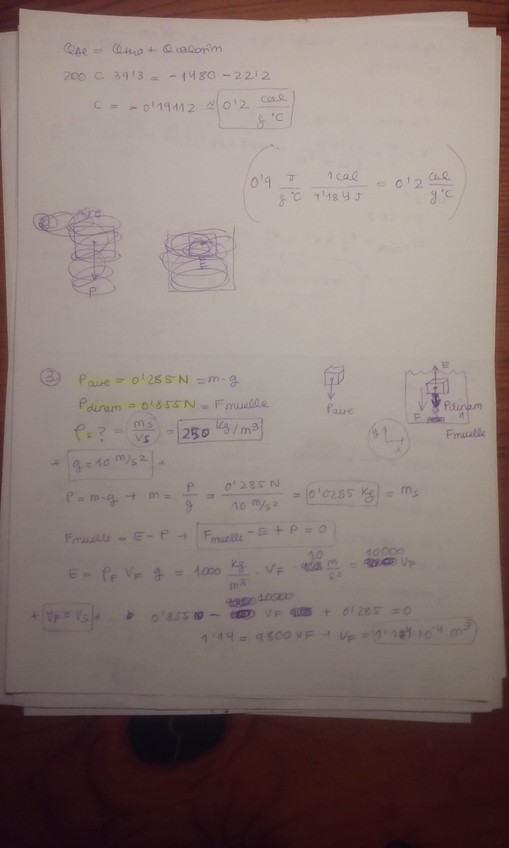 Q_Al = Q_H2O + Q_calorím
200 C 39'3 = -1480 - 22'2
C = -0'19112 ≈ 0'2 cal/g°C
(0'9 J/g°C 1cal/4'184 J = 0'2 cal/g°C)
P
E
③ P_aire = 0'285 N = m·g
P_dinam = 0'855 N = F muelle
ρ_s? = m_s/V_s = 250 kg/m³
E
P_aire
P_dinam
F muelle
* g = 10 m/s² *
P = m·g → m = P/g = 0'285 N/10 m/s² = 0'0285 kg = m_s
F muelle = E - P → F muelle - E + P = 0
E = ρ_F V_F g = 1000 kg/m³ · V_F · 10 m/s² = 10000 V_F
* V_F = V_s * 0'855 - 10000 V_F + 0'285 = 0
1'14 = 9800 V_F → V_F = 1'14·10⁻⁴ m³